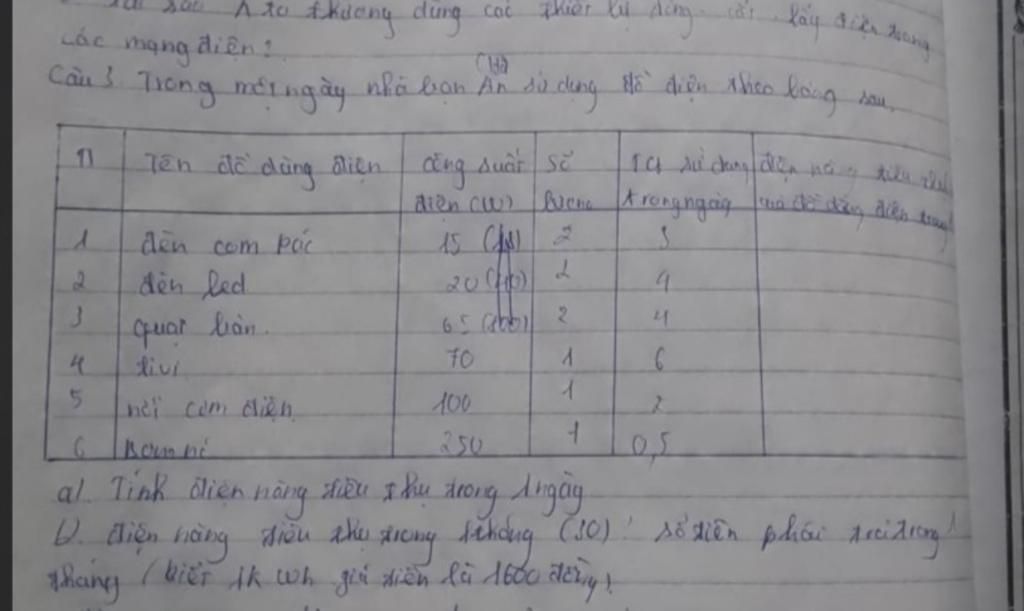 dùng các thiết bị đóng cắt, lấy điện trong
các mạng điện?
(Hà)
Câu 3 Trong một ngày nhà bạn An sử dụng đồ điện theo bảng sau
TT Tên đồ dùng điện công suất điện (W) Số lượng TG sử dụng trong ngày điện năng tiêu thụ của đồ dùng điện trong
1 đèn com pắc 15 2 3
2 đèn led 20 2 4
3 quạt bàn. 65 2 4
4 tivi 70 1 6
5 nồi cơm điện 100 1 2
6 250 1 0,5
a). Tính điện năng tiêu thụ trong 1 ngày
b. điện năng tiêu thụ trong 1 tháng (30)! số tiền phải trả trong 1
tháng (biết 1k Wh giá tiền là 1600 đồng)!